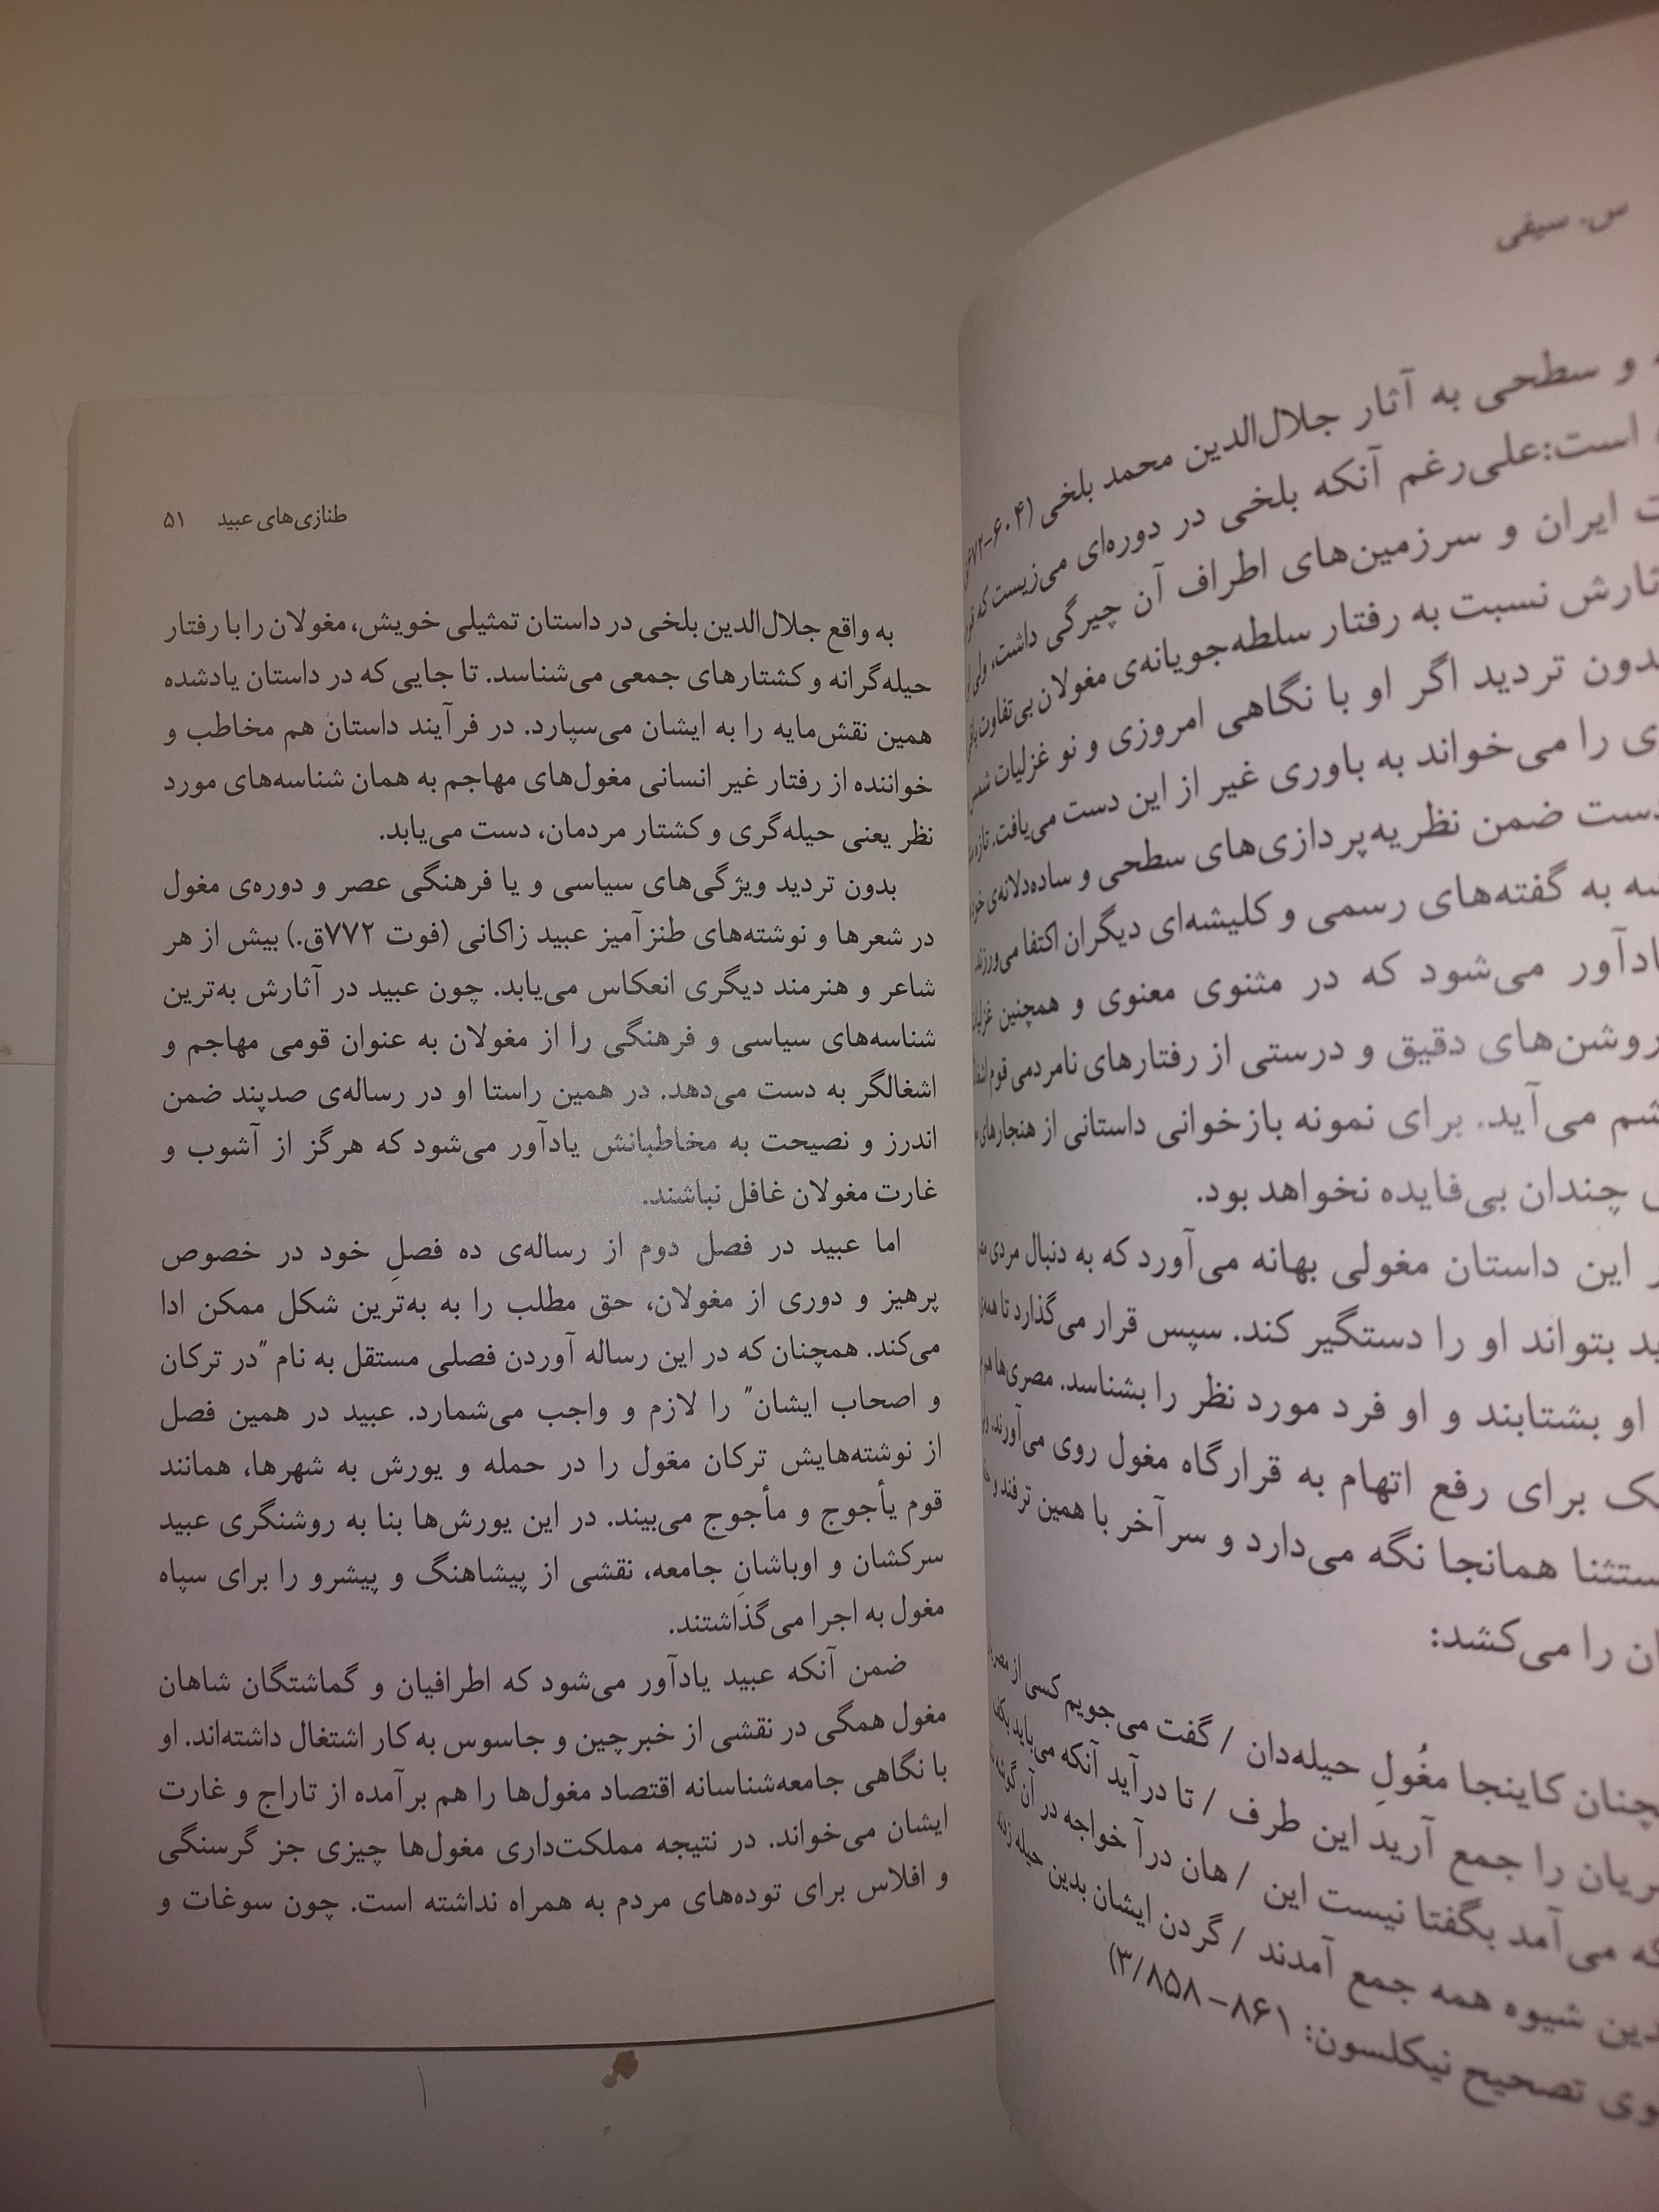 س. سیفی
و سطحی به آثار جلال‌الدین محمد بلخی (۶۰۴-۶۷۲
است:علی‌رغم آنکه بلخی در دوره‌ای می‌زیست که
ایران و سرزمین‌های اطراف آن چیرگی داشت، ولی
نسبت به رفتار سلطه‌جویانه‌ی مغولان بی‌تفاوت
تردید اگر او با نگاهی امروزی و نو غزلیات شمس
را می‌خواند به باوری غیر از این دست می‌یافت. تازه
ضمن نظریه‌پردازی‌های سطحی و ساده‌دلانه‌ی خود
به گفته‌های رسمی و کلیشه‌ای دیگران اکتفا می‌ورزند.
می‌شود که در مثنوی معنوی و همچنین
روشن‌های دقیق و درستی از رفتارهای نامردمی قوم
می‌آید. برای نمونه بازخوانی داستانی از هنجارهای
چندان بی‌فایده نخواهد بود.
این داستان مغولی بهانه می‌آورد که به دنبال مردی
بتواند او را دستگیر کند. سپس قرار می‌گذارد تا همه‌ی
او بشتابند و او فرد مورد نظر را بشناسد. مصری‌ها هم
برای رفع اتهام به قرارگاه مغول روی می‌آورند.
همانجا نگه می‌دارد و سرآخر با همین ترفند و
را می‌کشد:
کاینجا مغُولِ حیله‌دان / گفت می‌جویم کسی از
را جمع آرید این طرف / تا درآید آنکه می‌باید
می‌آمد بگفتا نیست این / هان درآ خواجه در آن گوشه
شیوه همه جمع آمدند / گردن ایشان بدین حیله زدند
تصحیح نیکلسون: ۸۶۱- ۳/۸۵۸)
طنازی‌های عبید ۵۱
به واقع جلال‌الدین بلخی در داستان تمثیلی خویش، مغولان را با رفتار
حیله‌گرانه و کشتارهای جمعی می‌شناسد. تا جایی که در داستان یادشده
همین نقش‌مایه را به ایشان می‌سپارد. در فرآیند داستان هم مخاطب و
خواننده از رفتار غیر انسانی مغول‌های مهاجم به همان شناسه‌های مورد
نظر یعنی حیله‌گری و کشتار مردمان، دست می‌یابد.
بدون تردید ویژگی‌های سیاسی و یا فرهنگی عصر و دوره‌ی مغول
در شعرها و نوشته‌های طنزآمیز عبید زاکانی (فوت ۷۷۲ق.) بیش از هر
شاعر و هنرمند دیگری انعکاس می‌یابد. چون عبید در آثارش به‌ترین
شناسه‌های سیاسی و فرهنگی را از مغولان به عنوان قومی مهاجم و
اشغالگر به دست می‌دهد. در همین راستا او در رساله‌ی صدپند ضمن
اندرز و نصیحت به مخاطبانش یادآور می‌شود که هرگز از آشوب و
غارت مغولان غافل نباشند.
اما عبید در فصل دوم از رساله‌ی ده فصلِ خود در خصوص
پرهیز و دوری از مغولان، حق مطلب را به به‌ترین شکل ممکن ادا
می‌کند. همچنان که در این رساله آوردن فصلی مستقل به نام "در ترکان
و اصحاب ایشان" را لازم و واجب می‌شمارد. عبید در همین فصل
از نوشته‌هایش ترکان مغول را در حمله و یورش به شهرها، همانند
قوم یأجوج و مأجوج می‌بیند. در این یورش‌ها بنا به روشنگری عبید
سرکشان و اوباشانِ جامعه، نقشی از پیشاهنگ و پیشرو را برای سپاه
مغول به اجرا می‌گذاشتند.
ضمن آنکه عبید یادآور می‌شود که اطرافیان و گماشتگان شاهان
مغول همگی در نقشی از خبرچین و جاسوس به کار اشتغال داشته‌اند. او
با نگاهی جامعه‌شناسانه اقتصاد مغول‌ها را هم برآمده از تاراج و غارت
ایشان می‌خواند. در نتیجه مملکت‌داری مغول‌ها چیزی جز گرسنگی
و افلاس برای توده‌های مردم به همراه نداشته است. چون سوغات و